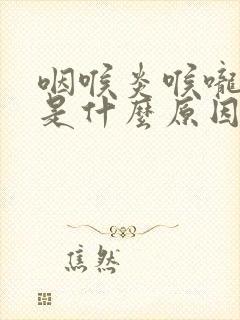 咽喉炎喉嚨
是什麼原因
焦然